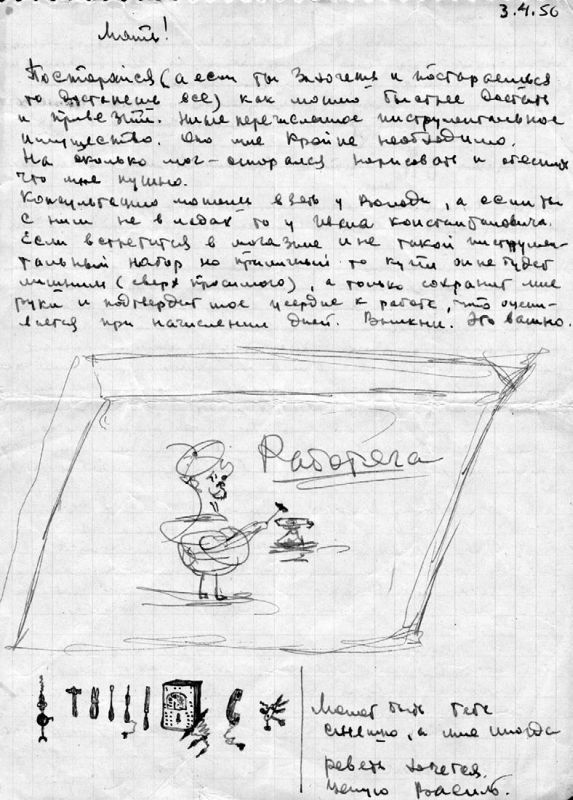 3.4.56
Мать!
Постарайся (а если ты захочешь и постараешься
то достанешь все) как можно быстрее достать
и привезти. Ниже перечисленное инструментальное
имущество. Оно мне крайне необходимо.
На сколько мог – старался нарисовать и объяснить
что мне нужно.
Консультацию можешь взять у Володи, а если ты
с ним не в ладах то у Ивана Константиновича.
Если встретится в магазине и не такой инструмен-
тальный набор но приличный то купи он не будет
лишним (сверх просимого), а только сохранит мне
руки и подтвердит мое усердие к работе, что оцени-
вается при начислении дней. Вникни. Это важно.
Работяга
Может быть тебе
смешно, а мне иногда
реветь хочется.
Целую Василь.